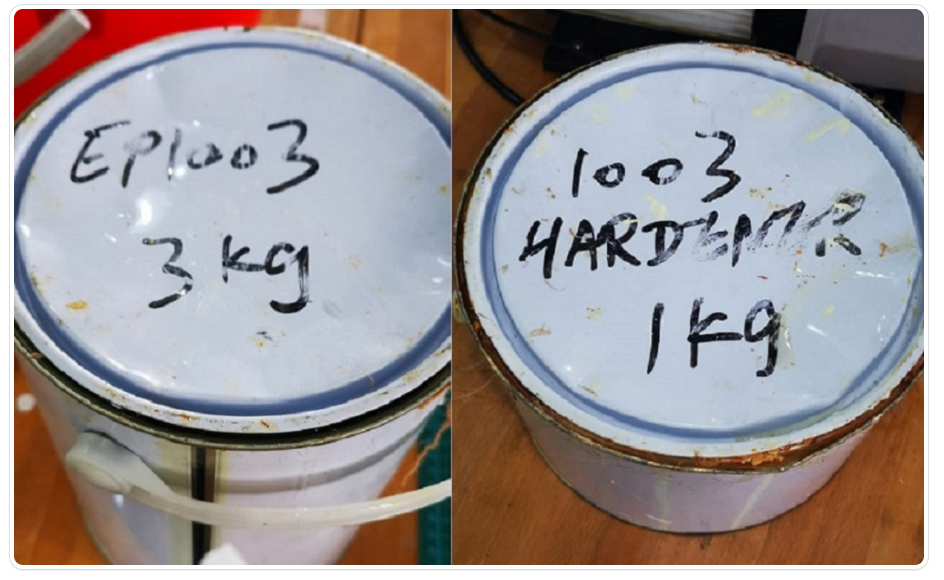 EP1003
3 kg
1003
HARDENER
1 kg